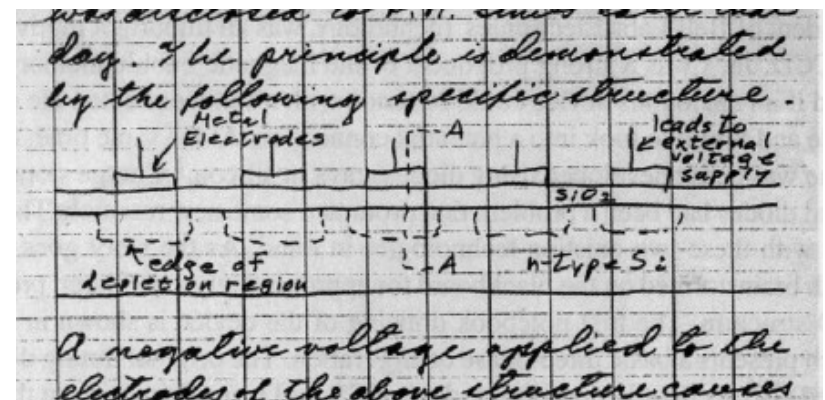 was disclosed to
day. The principle is demonstrated
by the following specific structure.
Metal
Electrodes
A
leads to
external
voltage
supply
SiO2
edge of
depletion region
A
n-type Si
A negative voltage applied to the
electrodes of the above structure causes